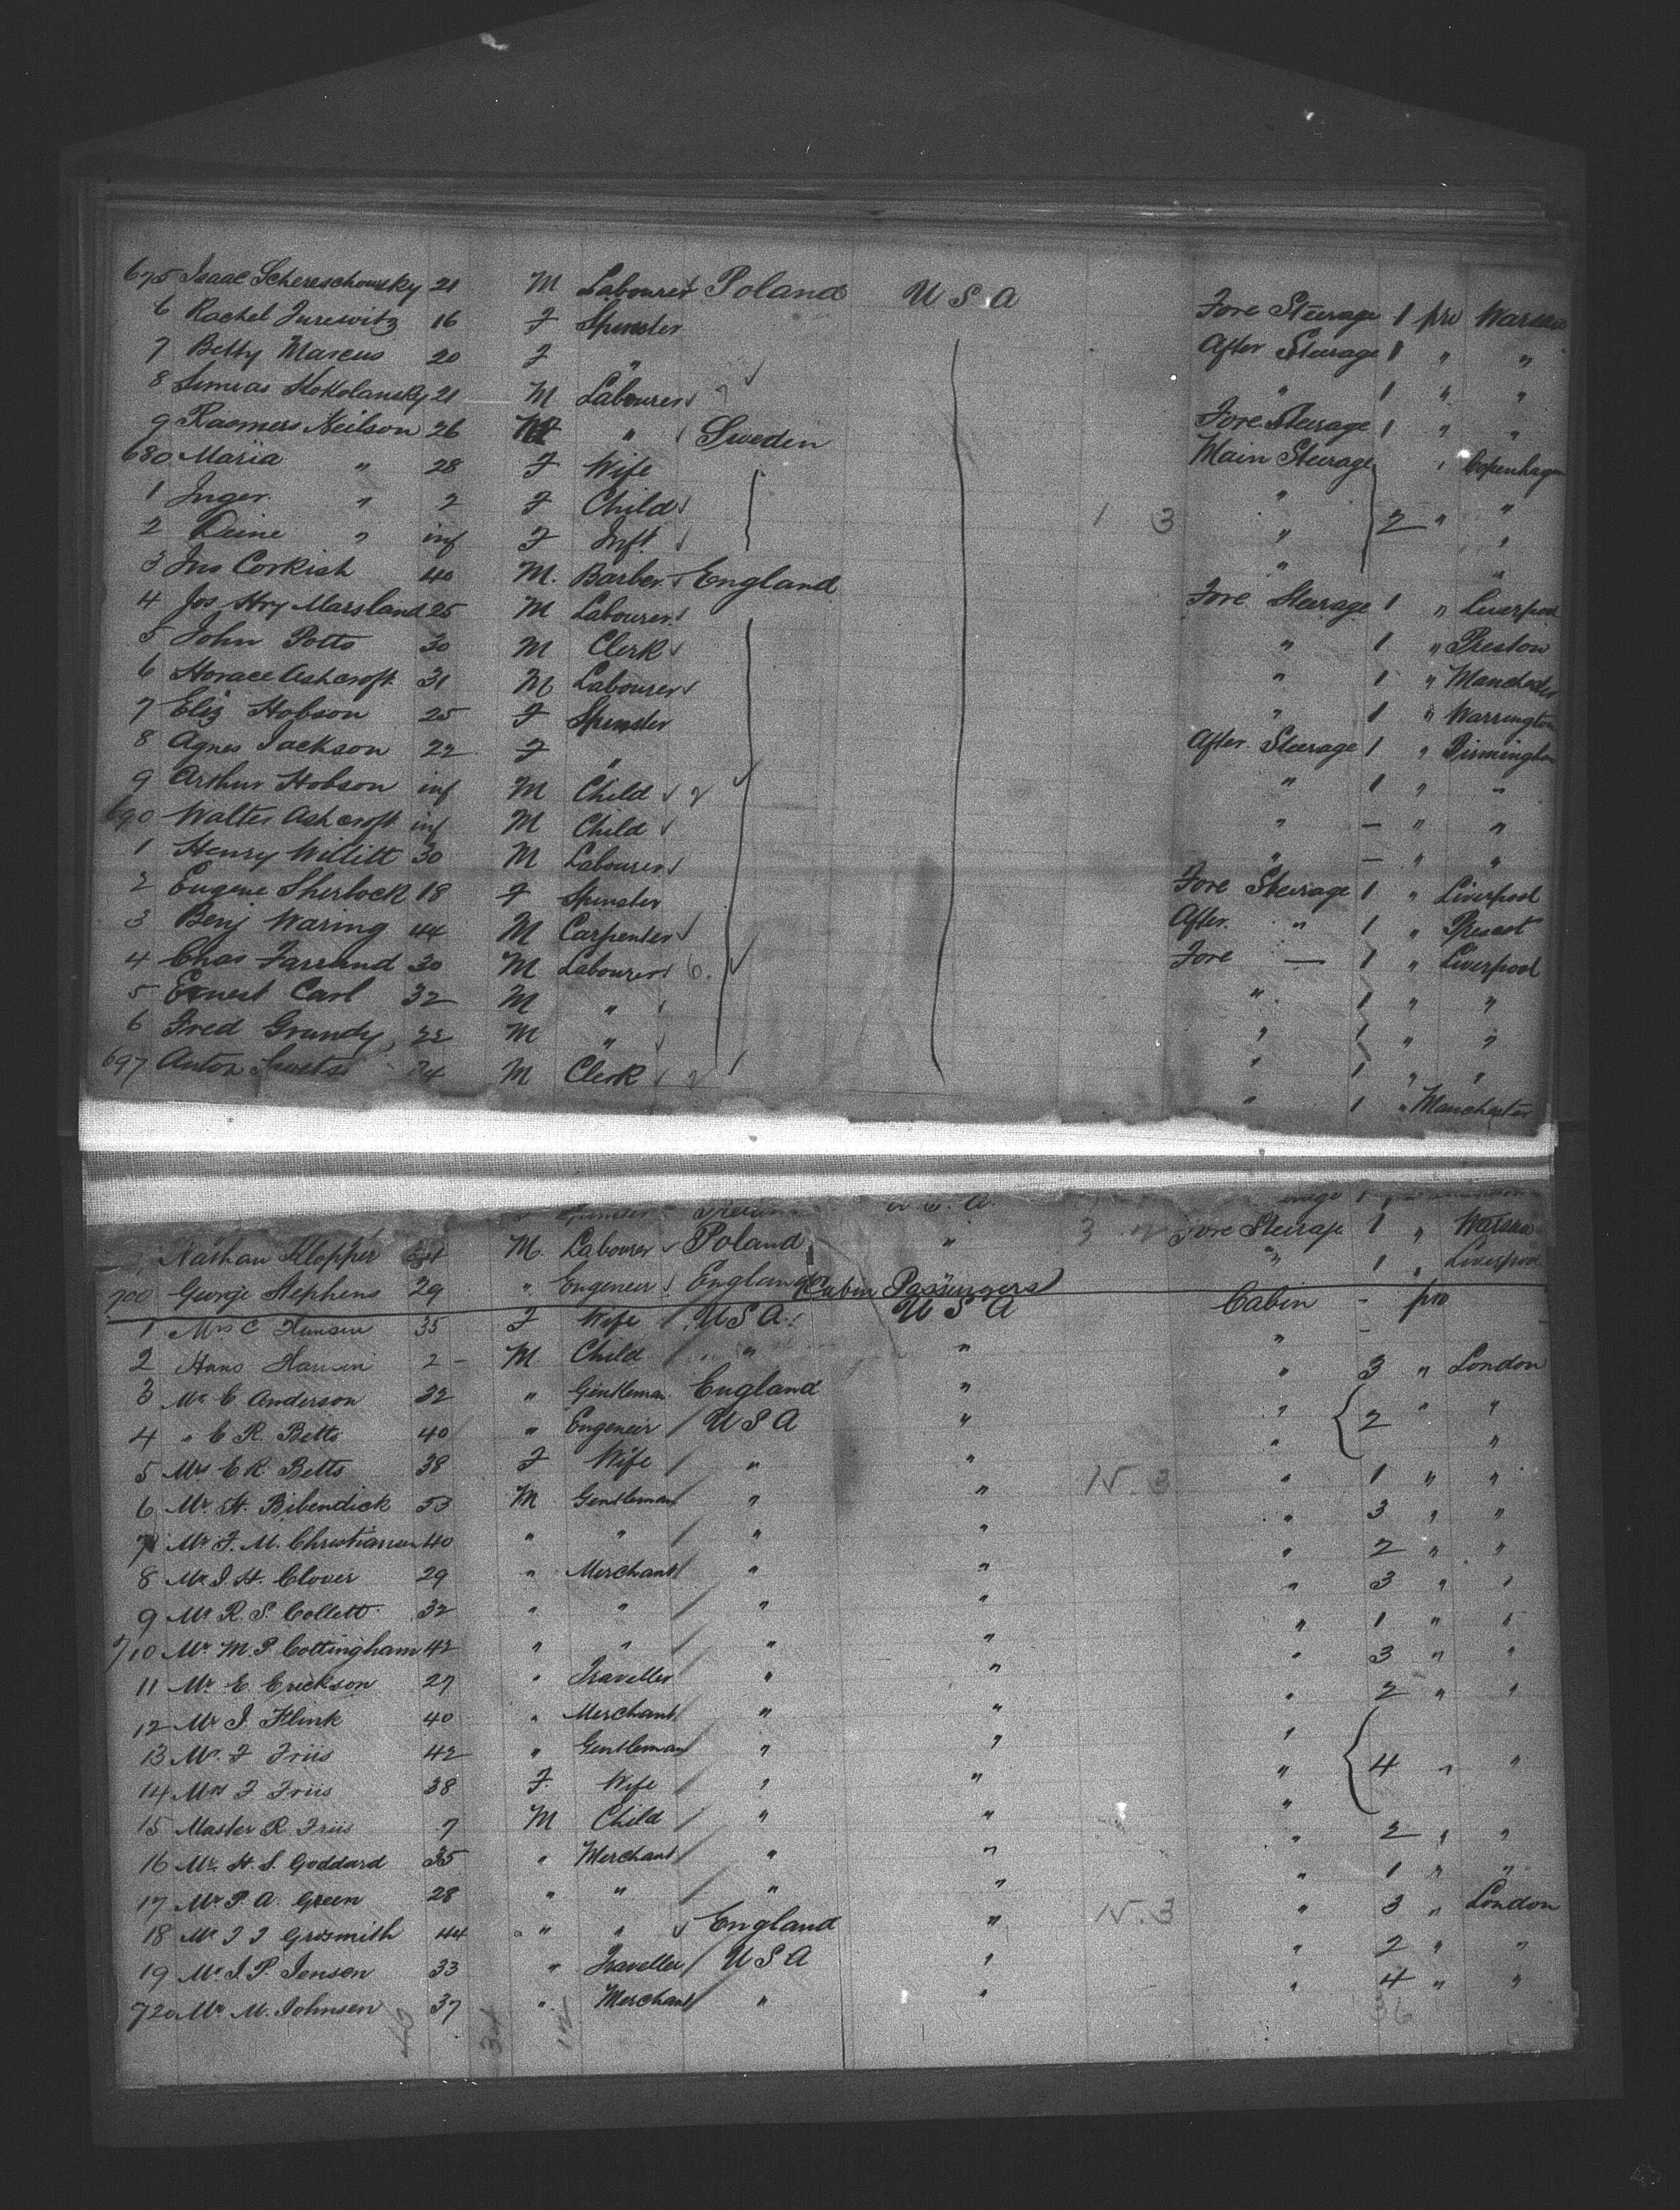 675 Isaac Schereschowsky 21 M Labourer Poland U S A Fore Steerage 1 pro Warsaw
6 Rachel Jurewitz 16 F Spinster After Steerage 1 " "
7 Betty Marcus 20 F " " 1 " "
8 Simras Kokolansky 21 M Labourer Fore Steerage 1 " "
9 Rasmers Neilson 26 M " Sweden Main Steerage " Copenhagen
680 Maria " 28 F Wife " "
1 Inger " 2 F Child 1 3 " 2 " "
2 Deine " inf F Inft "
3 Jno Corkish 40 M. Barber England Fore Steerage 1 " Liverpool
4 Jos Hry Marsland 25 M Labourer " 1 " Preston
5 John Potts 30 M Clerk " 1 " Manchester
6 Horace Ashcroft 31 M Labourer " 1 " Warrington
7 Eliz Hobson 25 F Spinster After Steerage 1 " Birmingham
8 Agnes Jackson 22 F " " 1 " "
9 Arthur Hobson inf M Child " — " "
690 Walter Ashcroft inf M Child " — " "
1 Henry Willitt 30 M Labourer Fore Steerage 1 " Liverpool
2 Eugene Sherlock 18 F Spinster After " 1 " Prescot
3 Benj Waring 44 M Carpenter Fore — 1 " Liverpool
4 Chas Farrand 30 M Labourer 6. " 1 " "
5 Ernest Carl 32 M " " 1 " "
6 Fred Grundy 22 M " " 1 " "
697 Anton 24 M Clerk " 1 " Manchester
Nathan Klopper M. Labourer Poland " 3 Fore Steerage 1 " Warsaw
700 George Stephens 29 " Engeneir England " 1 " Liverpool
Cabin Passengers
1 Mrs C Hansen 35 F Wife U S A U S A Cabin - pro
2 Hans Hansen 2 - M Child " " " -
3 Mr C Anderson 32 " Gentleman England " " 3 " London
4 " C R. Betts 40 " Engeneir U S A " " 2 " "
5 Mrs C R. Betts 38 F Wife " " " "
6 Mr. H. Bibendick 53 M Gentleman " " N. 3 " 1 " "
7 Mr F. M. Christiansen 40 " " " " " 3 " "
8 Mr J. H. Clover 29 " Merchant " " " 2 " "
9 Mr R. S. Collett 32 " " " " " 3 " "
710 Mr. M. P. Cottingham 42 " " " " " 1 " "
11 Mr. E. Erickson 27 " Traveller " " " 3 " "
12 Mr J. Flink 40 " Merchant " " " 2 " "
13 Mr. F Friis 42 " Gentleman " " "
14 Mrs F Friis 38 F. Wife " " " 4 " "
15 Master R. Friis 7 M Child " " "
16 Mr. H. S. Goddard 35 " Merchant " " " 2 " "
17 Mr P. A. Green 28 " " " " " 1 " "
18 Mr J J Grosmith 44 " " England " N. 3 " 3 " London
19 Mr. J. P. Jensen 33 " Traveller U S A " " 2 " "
720 Mr M. Johnsen 37 " Merchant " " " 4 " "
36